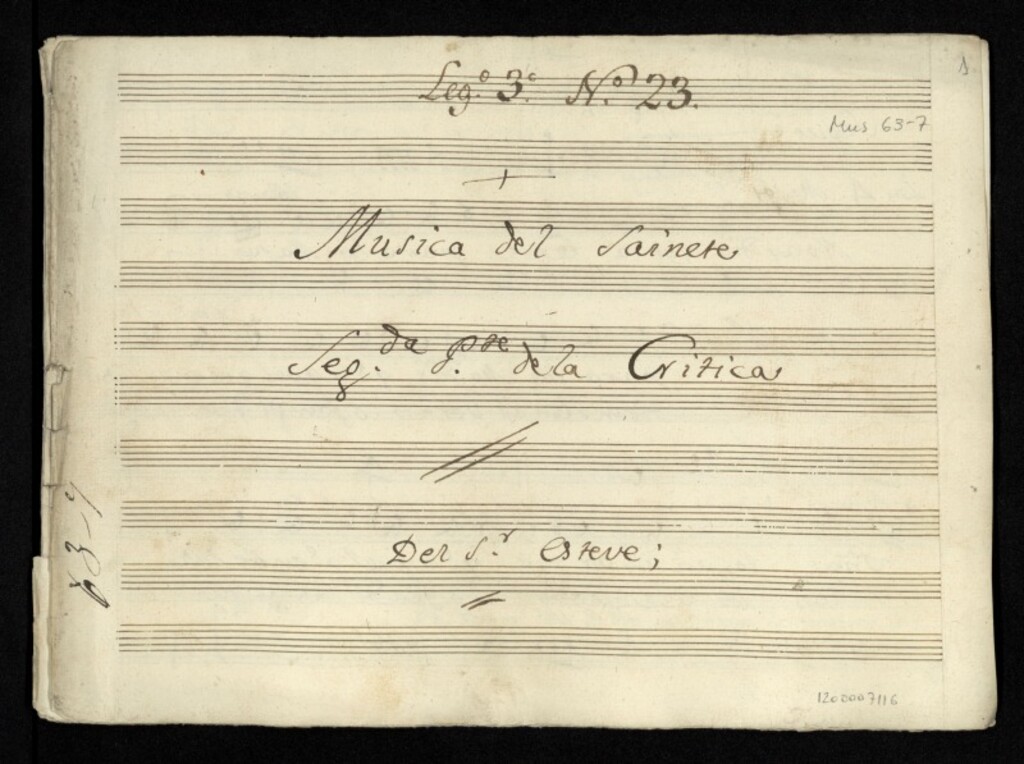 1
Leg.º 3.º N.º 23.
Mus 63-7
Musica del Sainete
Seg.da p.te dela Critica
Del S.r Esteve;
63-7
1200007116